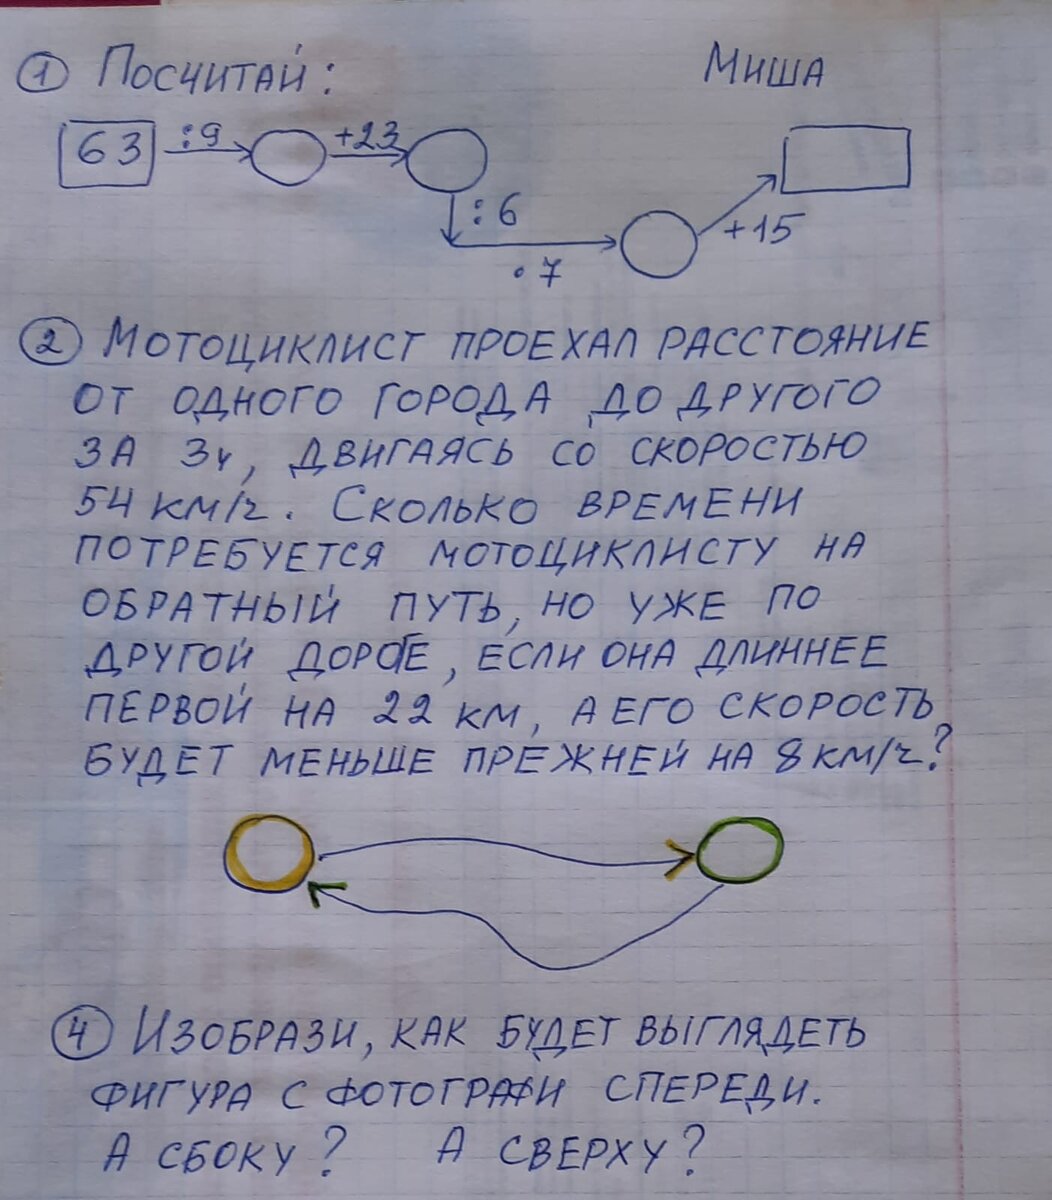 1 Посчитай: Миша
63 :9 +23
:6
+15
·7
2 Мотоциклист проехал расстояние
от одного города до другого
за 3ч, двигаясь со скоростью
54 км/ч. Сколько времени
потребуется мотоциклисту на
обратный путь, но уже по
другой дороге, если она длиннее
первой на 22 км, а его скорость
будет меньше прежней на 8 км/ч?
4 Изобрази, как будет выглядеть
фигура с фотографи спереди.
А сбоку? А сверху?